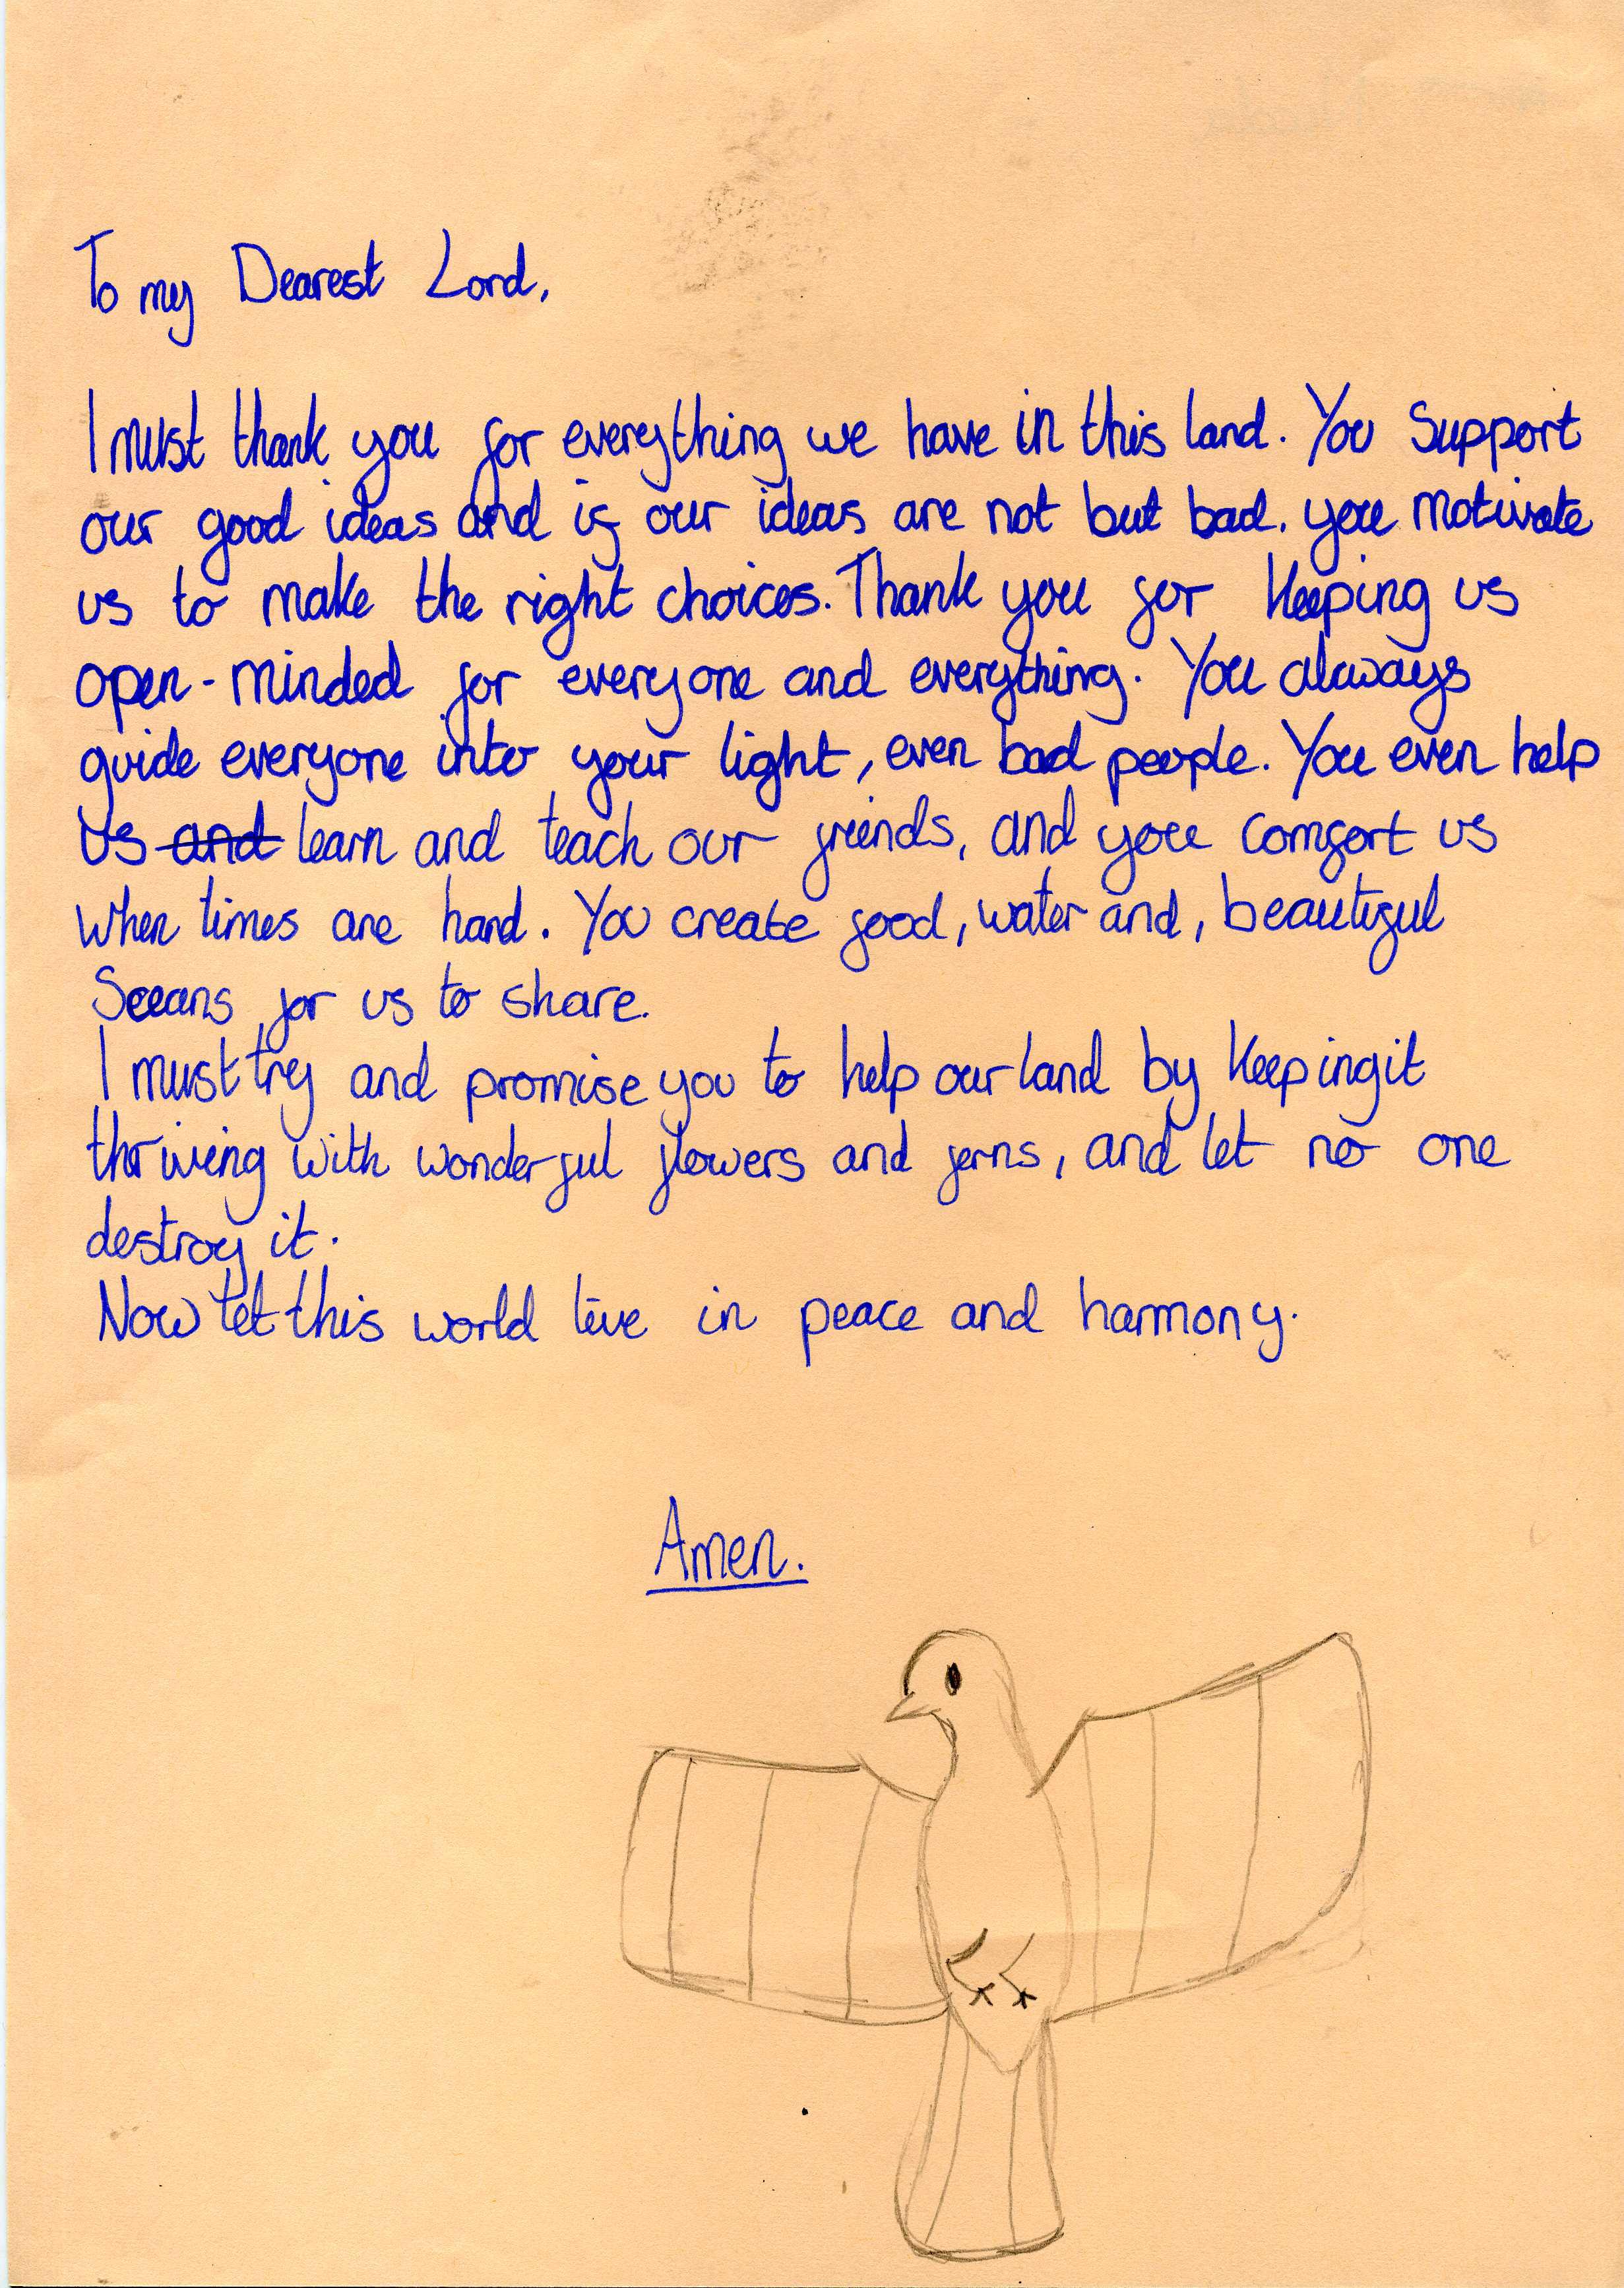 To my Dearest Lord,
I must thank you for everything we have in this land. You Support
our good ideas and if our ideas are not but bad. you motivate
us to make the right choices. Thank you for keeping us
open-minded for everyone and everything. You always
guide everyone into your light, even bad people. You even help
us and learn and teach our friends, and you comfort us
when times are hard. You create food, water and, beautiful
Seeans for us to share.
I must try and promise you to help our land by keeping it
thriving with wonderful flowers and ferns, and let no one
destroy it.
Now let this world live in peace and harmony.
Amen.